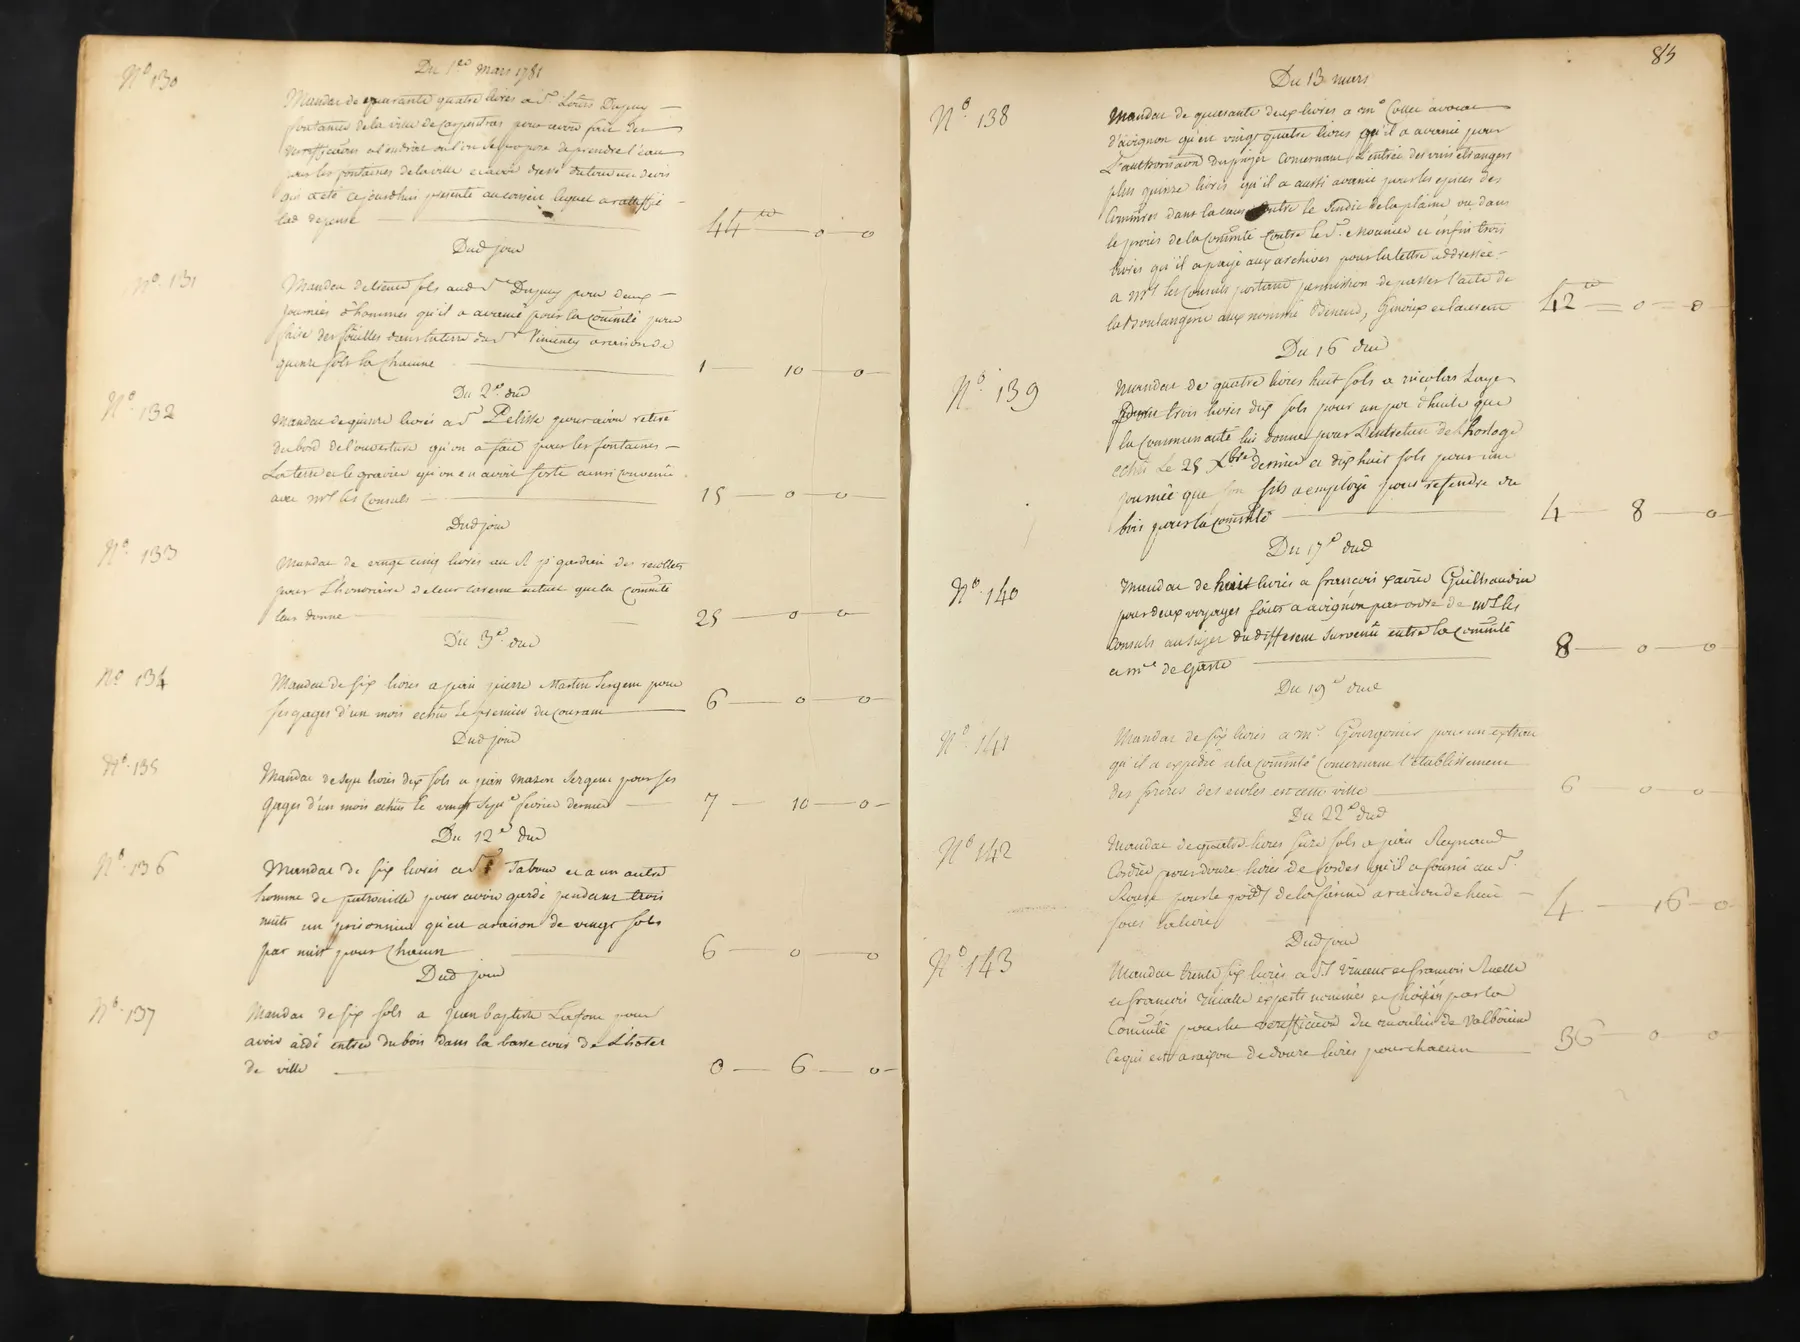 Nº 130
Du 1er Mars 1781
Mandat de quarante quatre livres a Sr Louis Dupuy
fontanier de la ville de Carpentras pour avoir fait des
veriffications a l'endroit ou l'on se propose de prendre l'eau
pour les fontaines de la ville et avoir dressé du tout un devis
qui a eté cejourd'hui presenté au conseil lequel a ratiffié
lad depense
44 ₶ 0 0
Dud jour
Nº 131
Mandat de trente sols aud Sr Dupuy pour deux
journées d'hommes qu'il a avancé pour la Comm̄té pour
faire des fouilles dans la terre du Sr a raison de
quinze sols la Chacune
1 10 0
Du 2e dud
Nº 132
Mandat de quinze livres a Sr Pelisse pour avoir retiré
du bord de l'ouverture qu'on a fait pour les fontaines
La terre et le gravier qu'on en avoit sorti ainsi convenu
avec mrs les Consuls
15 0 0
Dud jour
Nº 133
Mandat de vingt cinq livres au R. p. gardien des recollets
pour L'honoraire de leur careme que la Comm̄té
leur donne
25 0 0
Du 3e dud
Nº 134
Mandat de six livres a jean pierre Martin Sergent pour
ses gages d'un mois echus le premier du courant
6 0 0
Dud jour
Nº 135
Mandat de sept livres dix sols a jean mazen Sergent pour ses
Gages d'un mois echus le vingt sept fevrier dernier
7 10 0
Du 12e dud
Nº 136
Mandat de six livres a Sr Tabour et a un autre
homme de patrouille pour avoir gardé pendant trois
nuits un prisonnier qu'est a raison de vingt sols
par nuit pour Chacun
6 0 0
Dud jour
Nº 137
Mandat de six sols a Jean baptiste Lafont pour
avoir aidé entrer du bois dans la basse cour de L'hotel
de ville
0 6 0
85
Du 13 mars
Nº 138
Mandat de quarante deux livres a me Collet avocat
d'avignon qu'est vingt quatre livres qu'il a avancé pour
L'authorisaon du projet concernant L'entrée des vins etrangers
plus quinze livres qu'il a aussi avancé pour les epices des
dans la cause contre le Sindic de la plaine vu dans
le procès de la Comm̄té Contre le Sr Mounier et enfin trois
livres qu'il a payé aux archives pour la lettre addressée
a mrs les Consuls portant permission de passer l'acte de
la Boulangerie aux nommé, Giroux et laurent
42 ₶ 0 0
Du 16 dud
Nº 139
Mandat de quatre livres huit sols a nicolas Laye
trois livres dix sols pour un pot d'huile que
la Communauté lui donne pour L'entretien de l'horloge
echu Le 25 Xbre dernier et dix huit sols pour une
journée que son fils a employé pour refendre du
bois pour la Comm̄té
4 8 0
Du 17e dud
Nº 140
Mandat de huit livres a francois xavier Guilhaudin
pour deux voyages faits a avignon par ordre de mrs les
Consuls au sujet du different survenû entre la Comm̄té
et mr de
8 0 0
Du 19e dud
Nº 141
Mandat de six livres a mr Gourgonier pour un extrait
qu'il a expedié a la Comm̄té Concernant l'etablissement
des freres des ecoles en cette ville
6 0 0
Du 22e dud
Nº 142
Mandat de quatre livres seize sols a jean Reynaud
Cordier pour douze livres de Cordes qu'il a fourni au Sr
pour le poids de la farine a raison de huit
sous la livre
4 16 0
Dud jour
Nº 143
Mandat trente six livres a Srs Vincent et francois Ruelle
et francois experts nommés et choisis par la
Comm̄té pour la verifficaon du moulin de
ce qui est a raison de douze livres pour chacun
36 0 0